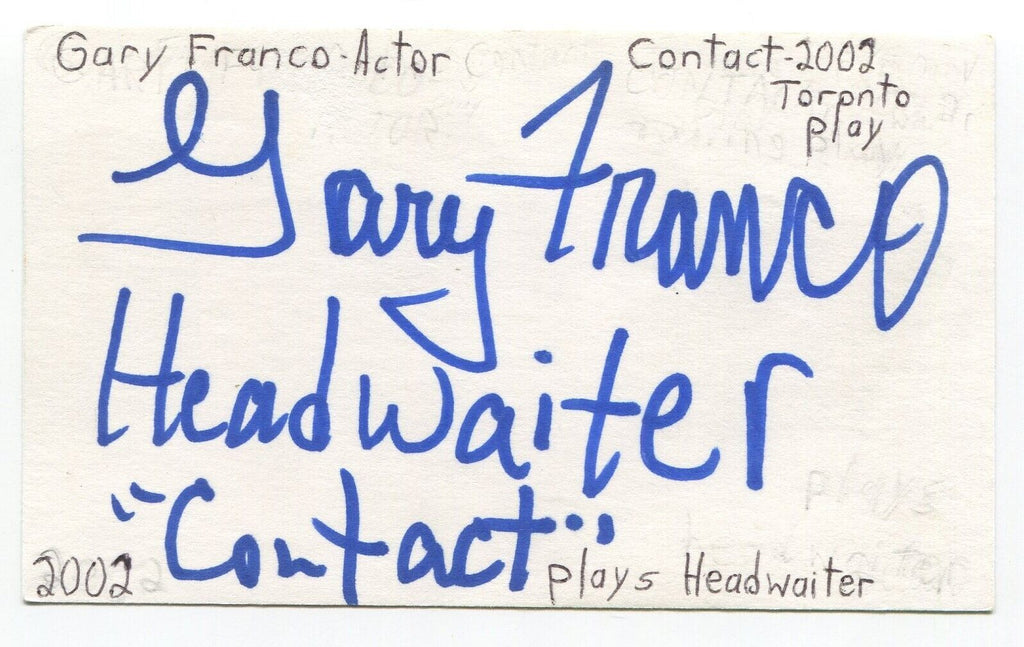 Gary Franco-Actor
Contact-2002
Torpnto
play
Gary Franco
Headwaiter
"Contact"
2002
plays Headwaiter